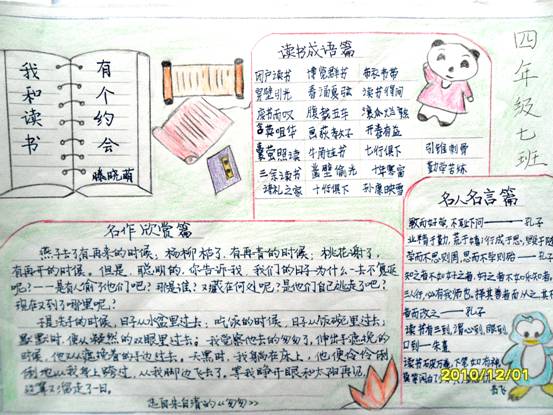 我和读书
有个约会
滕晓萌
四年级七班
读书成语篇
闭户读书 博览群书 带经书带
凿壁引光 春诵夏弦 读书得间
废书而叹 腹载五车 滚瓜烂熟
含英咀华 画荻教子 开卷有益
囊萤照读 牛角挂书 七行俱下 引锥刺骨
三余读书 凿壁偷光 十年寒窗 勤学苦练
诗礼之家 十行俱下 孙康映雪
名作欣赏篇
燕子去了,有再来的时候;杨柳枯了,有再青的时候;桃花谢了,
有再开的时候。但是,聪明的,你告诉我,我们的日子为什么一去不复返
呢?——是有人偷了他们吧?那是谁?又藏在何处呢?是他们自己逃走了吧?
现在又到了哪里呢?
于是洗手的时候,日子从水盆里过去;吃饭的时候,日子从饭碗里过去;
默默时,便从凝然的双眼里过去;我觉察他去的匆匆了,伸出手遮挽的
时候,他又从遮挽着的手边过去。天黑时,我躺在床上,他便伶伶俐
俐地从我身上跨过,从我脚边飞去了。等我睁开眼和太阳再见,
这算又溜走了一日。
选自朱自清的《匆匆》
名人名言篇
敏而好学,不耻下问——孔子
业精于勤,荒于嬉;行成于思,毁于随
学而不思则罔,思而不学则殆——孔子
知之者不如好之者,好之者不如乐知者。
三人行,必有我师也,择其善者而从之,其不
善而改之——孔子
读书有三到,谓心到,眼到
口到——朱熹
读书破万卷,下笔如有神
2010/12/01